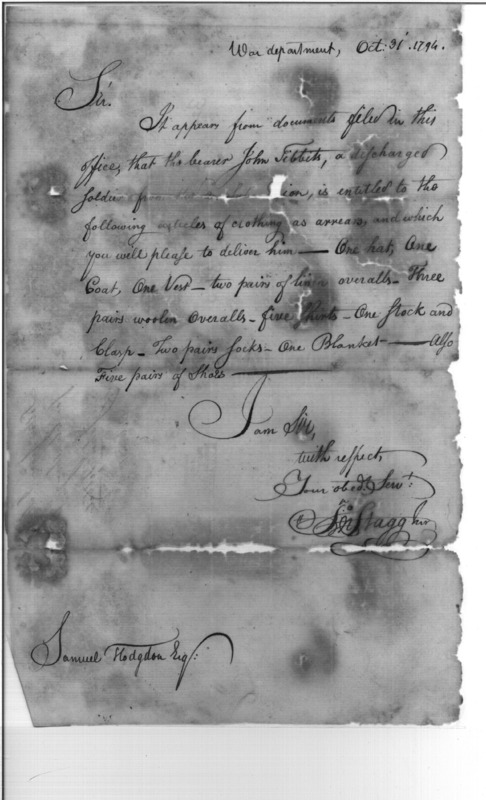 War department, Oct. 31st. 1794.
Sir.
It appears from documents filed in this
office, that the bearer John Tibbets, a discharged
soldier from the ion, is entitled to the
following articles of clothing as arrears, and which
you will please to deliver him — One hat, One
Coat, One Vest — two pairs of linen overalls — Three
pairs woolen Overalls — five Shirts — One Stock and
Clasp — Two pairs Socks — One Blanket — Also
Five pairs of Shoes —
I am Sir,
with respect,
Your obedt. Servt.
Jno Stagg Junr
Samuel Hodgdon Esq: